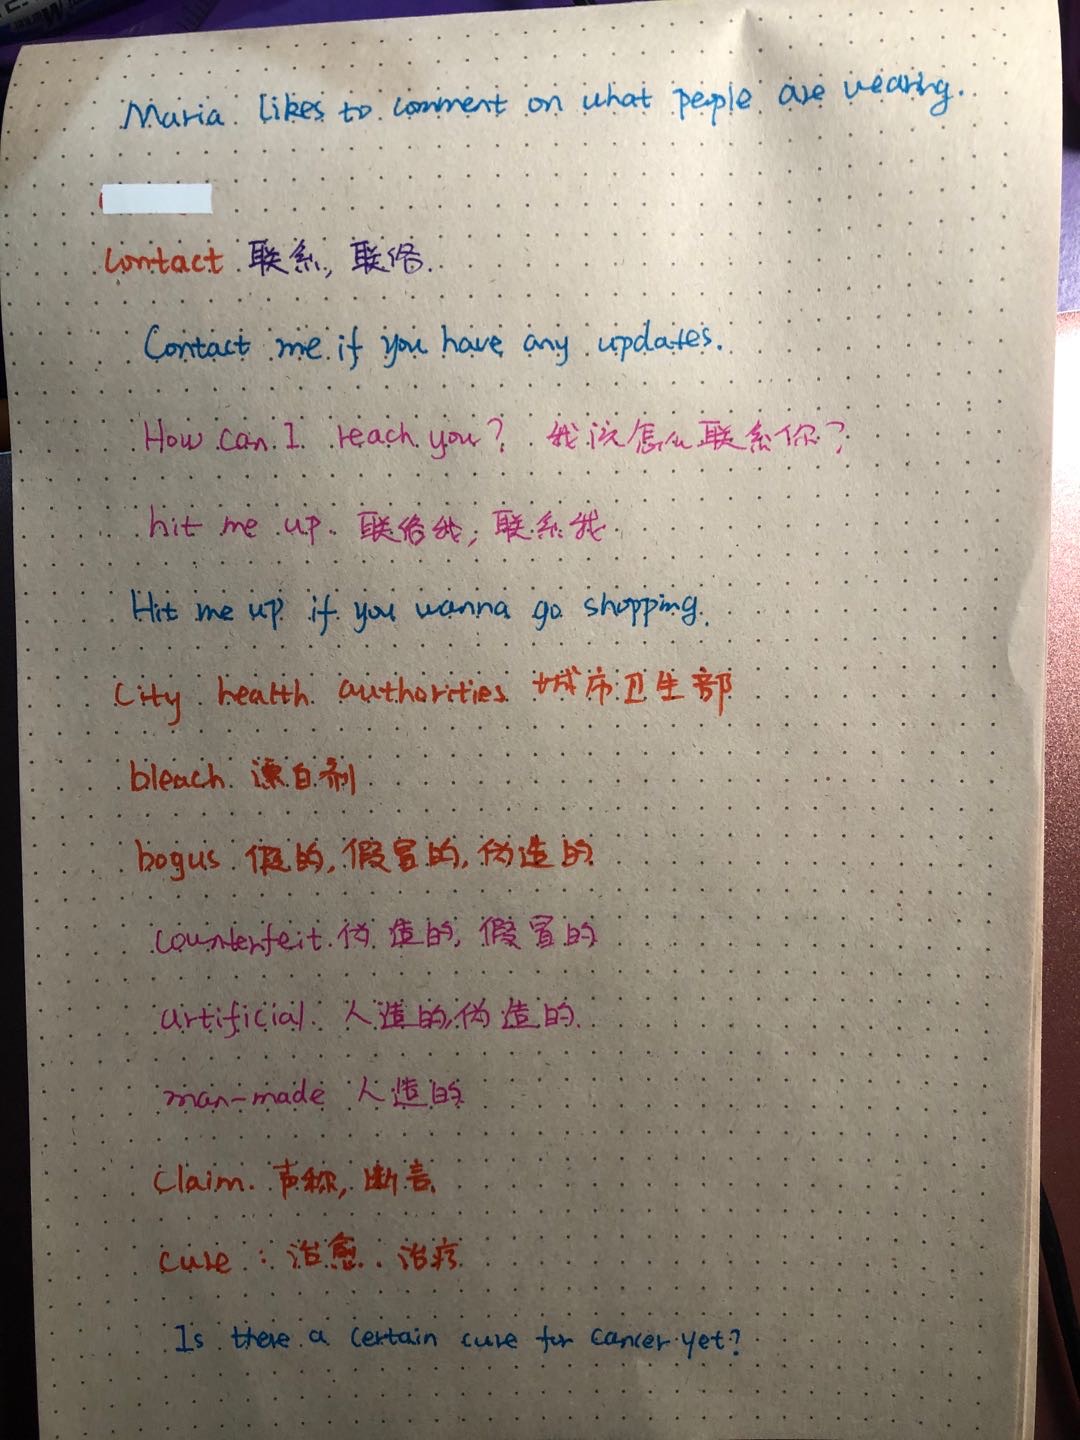 Maria likes to comment on what people are wearing.
Contact 联系, 联络.
Contact me if you have any updates.
How can I reach you? 我该怎么联系你?
hit me up 联络我; 联系我
Hit me up if you wanna go shopping.
City health authorities 城市卫生部
bleach 漂白剂
bogus 假的, 假冒的, 伪造的
counterfeit 伪造的, 假冒的
artificial 人造的, 伪造的
man-made 人造的
Claim 声称, 断言
cure : 治愈. 治疗
Is there a certain cure for cancer yet?